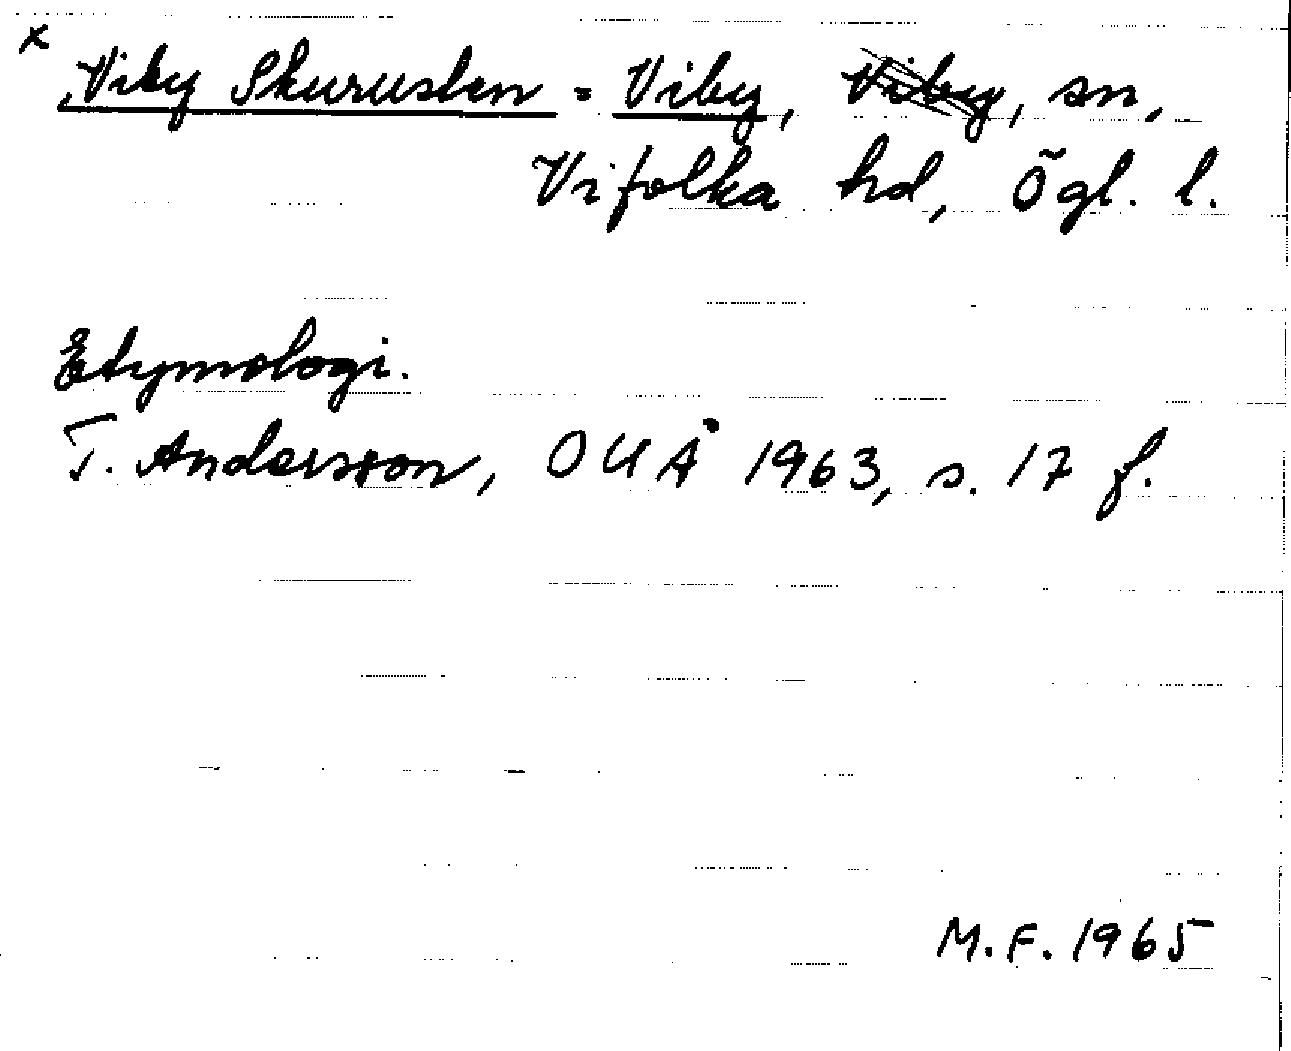 x
Viby Skurusten = Viby, Viby, sn,
Vifolka hd, Ögl. l.
Etymologi.
T. Andersson, OUÅ 1963, s. 17 f.
M.F. 1965